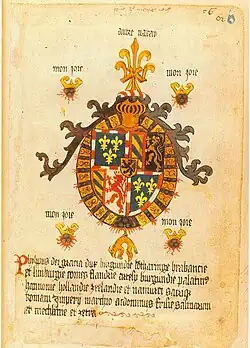 aultre naray
mon joie
mon joie
mon joie
mon joie
Philippus dei gracia dux burgundie lotharingie brabantie
et limburgie comes flandrie arthesy burgundie palatinus
hannonie hollandie zeelandie et namurci sacriq
romani Imperij marchio ac dominus frisie salinarum
et mechlinie et cetera